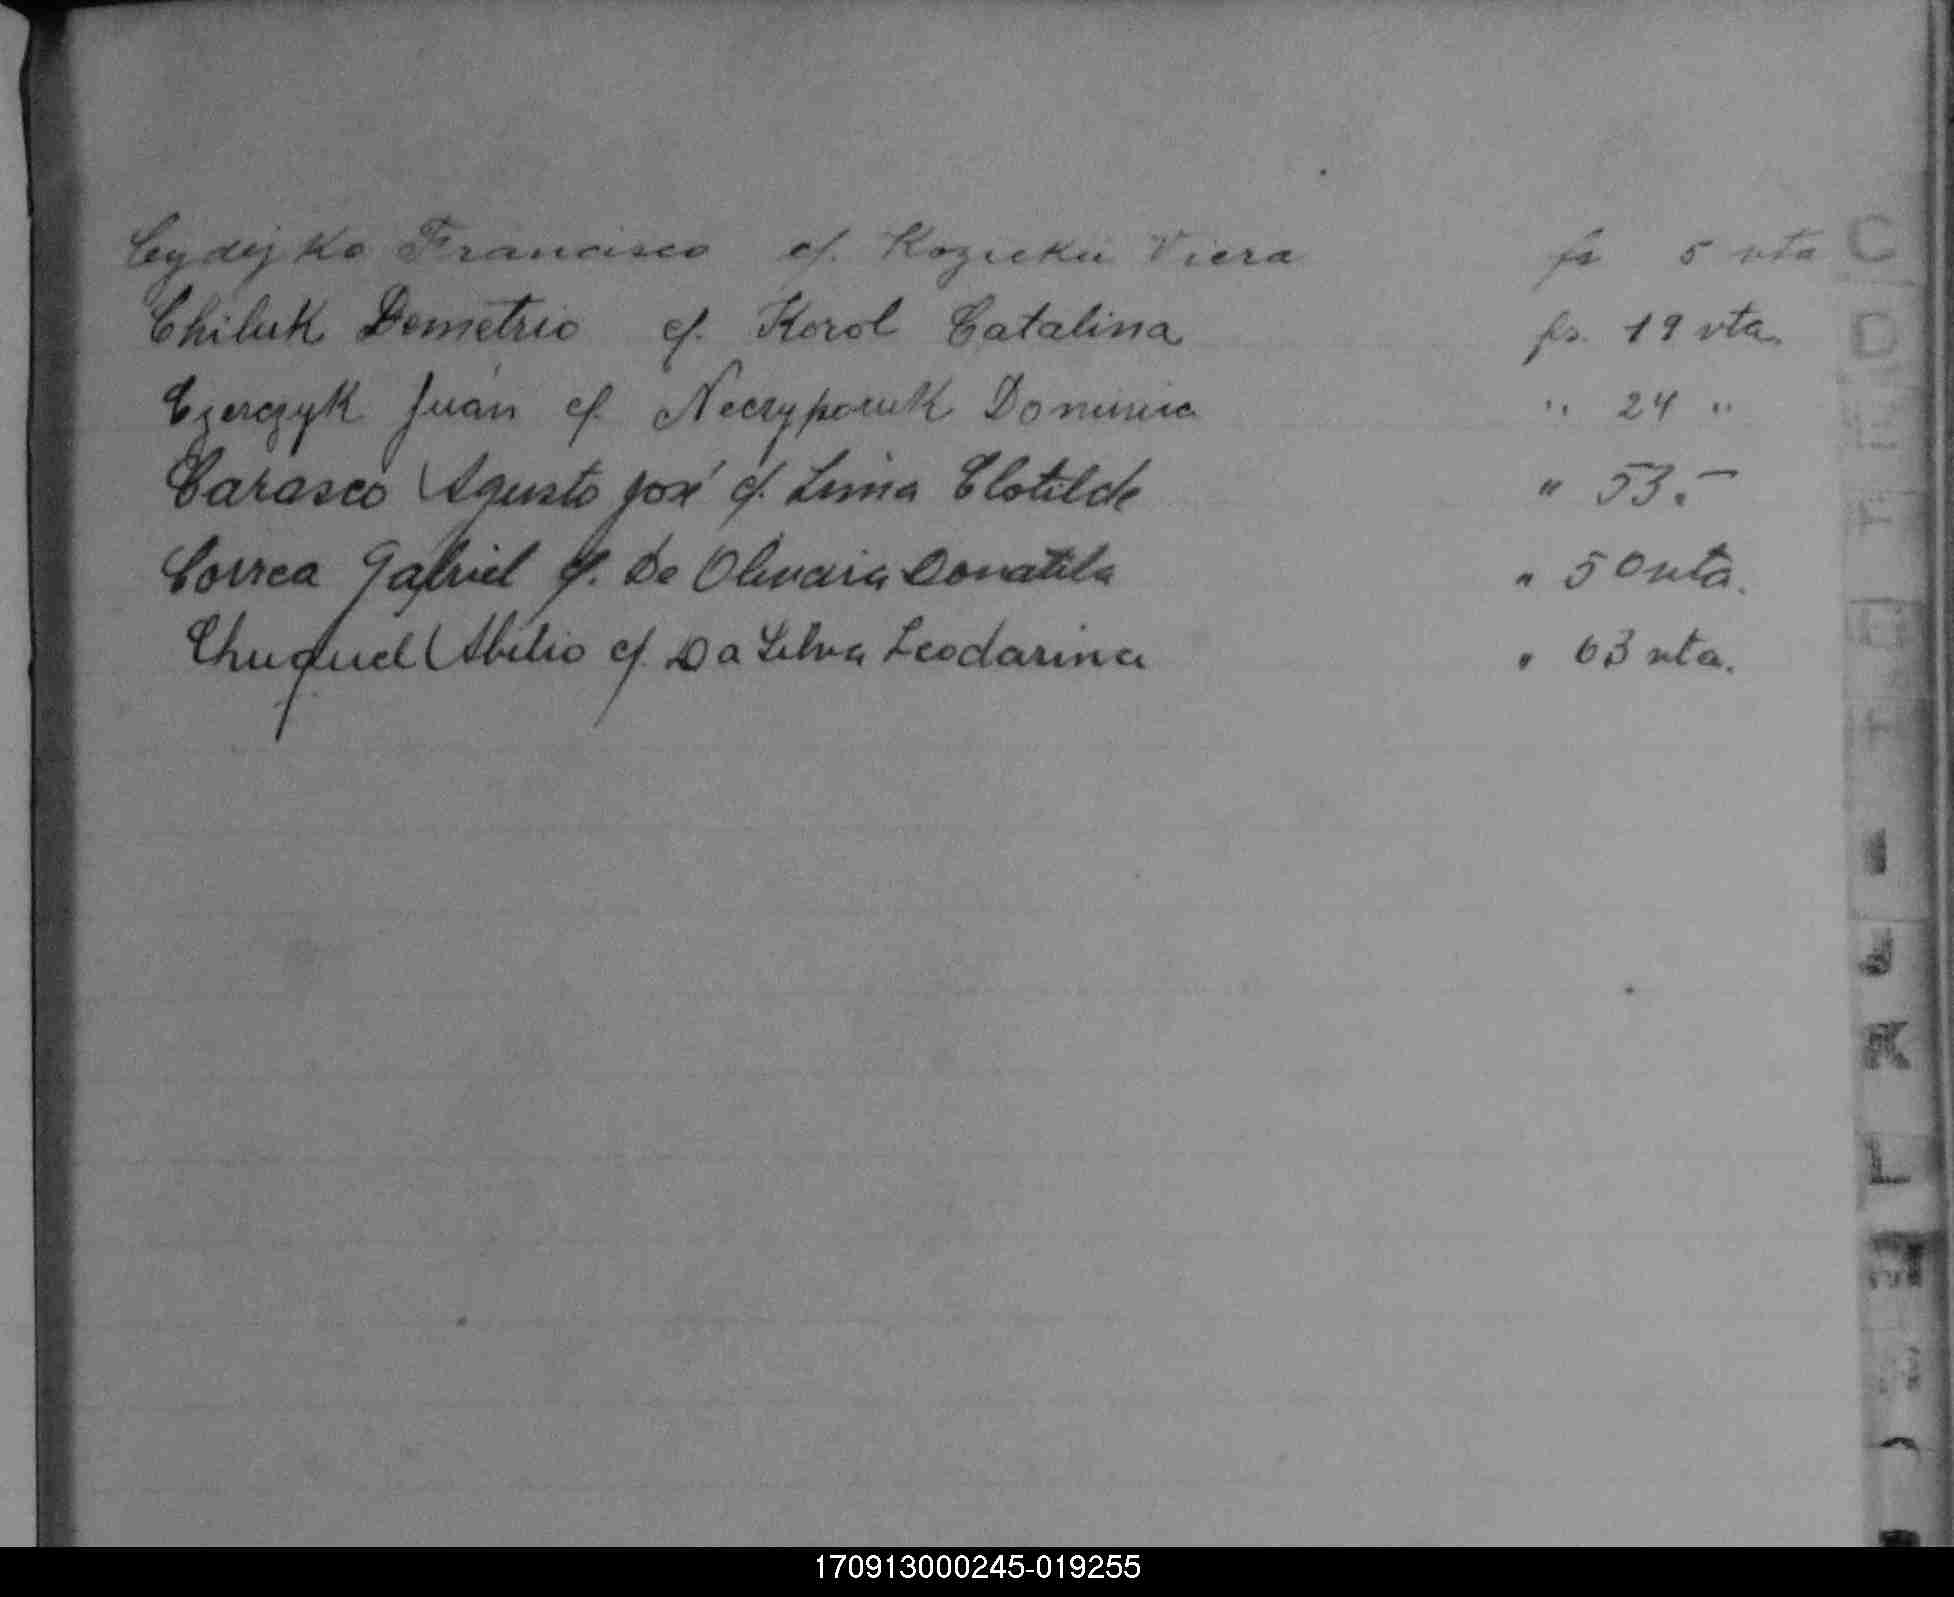 Cydejko Francisco c/. Kozicki Viera fs 5 vta
Chiluk Demetrio c/. Korol Catalina fs. 19 vta.
Czerczyk Juan c/. Neczyporuk Dominica " 24 "
Carasco Agusto José c/. Lima Clotilde " 53.–
Correa Gabriel c/. De Oliveira Donatila " 50 vta.
Chuquel Abilio c/. Da Silva Leodarina " 63 vta.
C
D
E
F
G
I
J
K
L
170913000245-019255